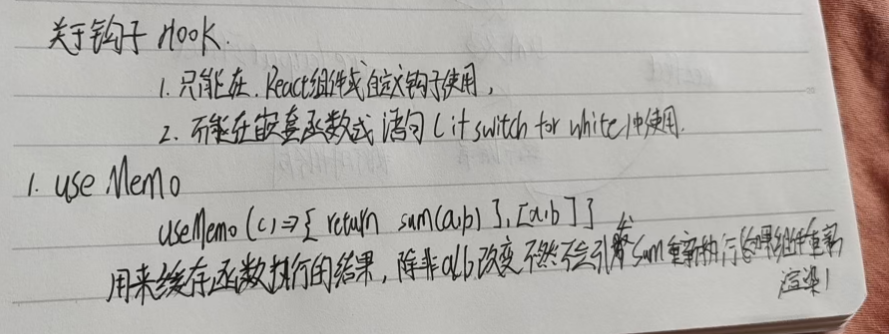 关于钩子 Hook.
1. 只能在.React组件或自定义钩子使用,
2. 不能在嵌套函数或语句(if switch for while)中使用.
1. use Memo
useMemo(()=>{ return sum(a,b) },[a,b])
用来缓存函数执行的结果,除非a/b改变不然不会引发sum重新执行(如果组件重新
渲染)